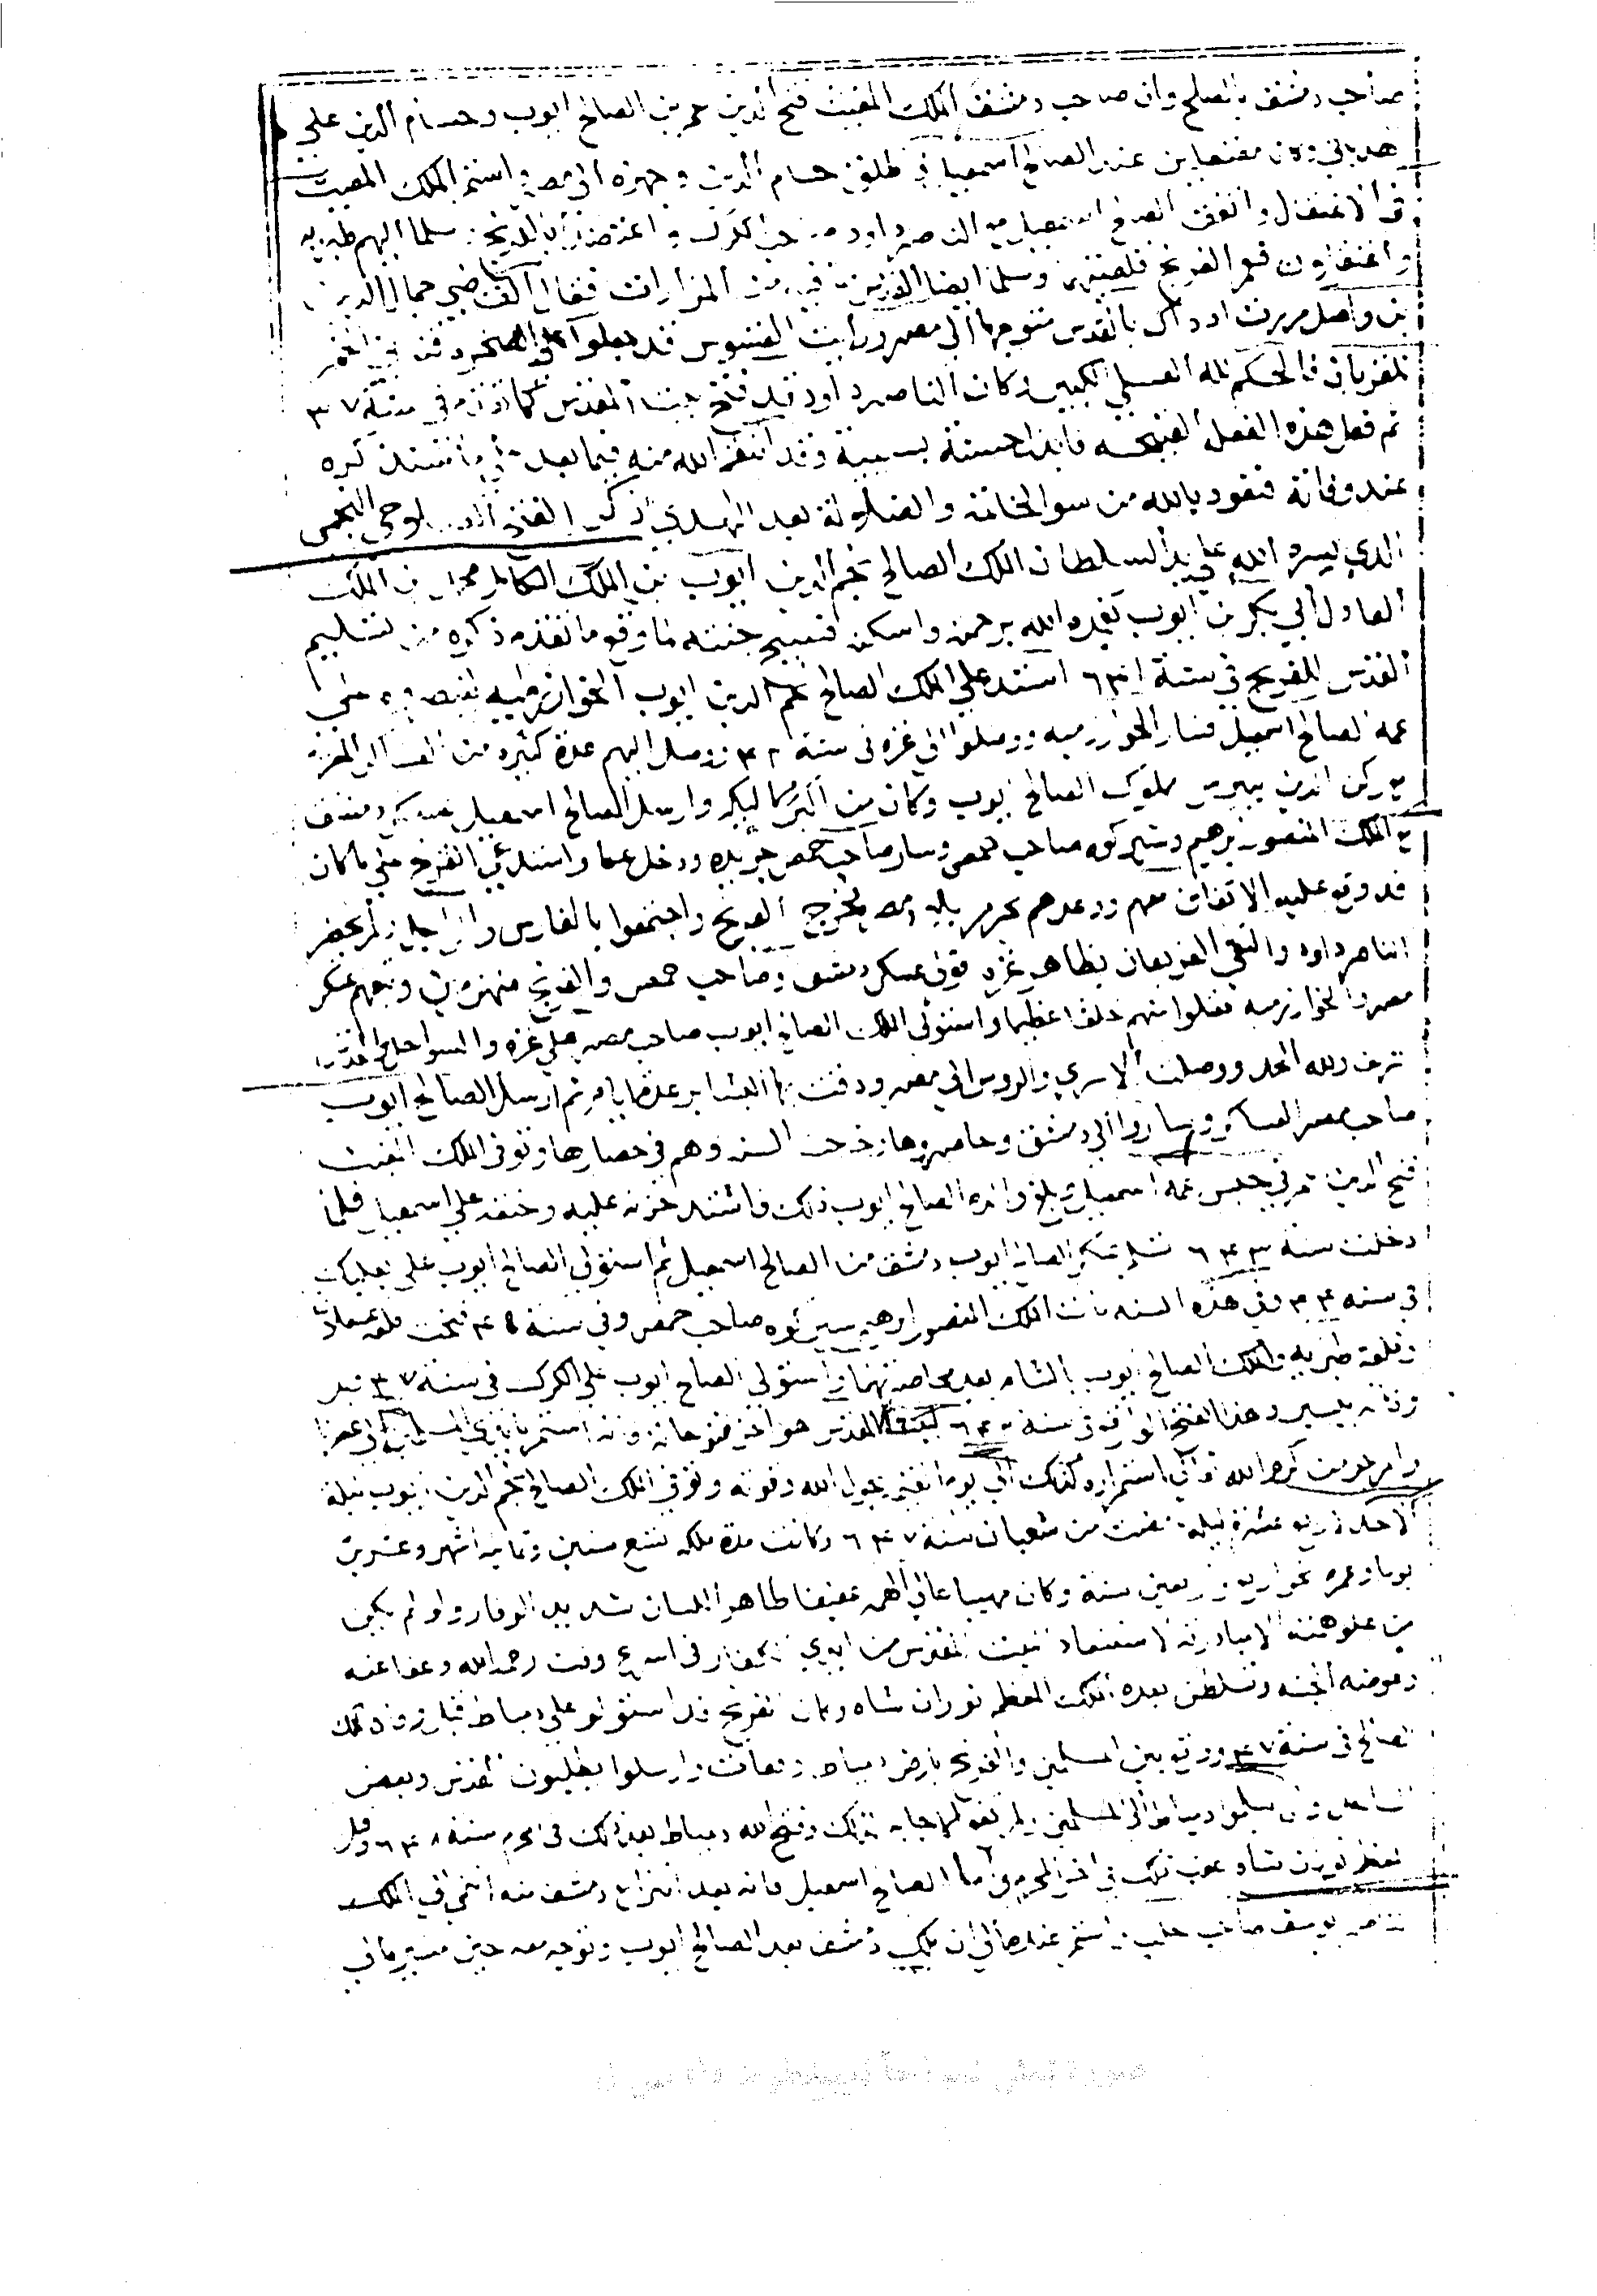 صاحب دمشق بالصلح وان صاحب دمشق الملك المغيث فتح الدين عمر بن الصالح ايوب وحسام الدين علي
هدباني وكان معتقلين عند الصالح اسمعيل فاطلق حسام الدين وجهزه الى مصر واستمر الملك المغيث
في الاعتقال واتفق الصالح اسمعيل مع الناصر داود صاحب الكرك واعتضدا بالفرنج وسلما اليهم طبريه
وعسقلان فعمر الفرنج قلعتيهما وسلما ايضا القدس بما فيه من المزارات فقال القاضي جمال الدين
بن واصل مررت اذ ذاك بالقدس متوجها الى مصر ورايت القسوس قد جعلوا على الصخره قناني الخمر
للقربان فالحكم لله العلي الكبير وكان الناصر داود قد فتح بيت المقدس كما تقدم في سنة ٣٧
ثم فعل هذه الفعله القبيحه فابدل حسنته بسيئة وقد انتقم الله منه فيما بعد
عند وفاته فنعوذ بالله من سو الخاتمة والضلالة بعد الهدى ذكر الفتح النجمي
الذي يسره الله على يد السلطان الملك الصالح نجم الدين ايوب بن الملك الكامل محمد بن الملك
العادل ابي بكر بن ايوب تغمده الله برحمته واسكنه فسيح جنته لما وقع ما تقدم ذكره من تسليم
القدس للفرنج في سنة ٦٤١ استدعى الملك الصالح نجم الدين ايوب الخوارزميه لينصروه على
عمه الصالح اسمعيل فسار الخوارزميه ووصلوا الى غزه في سنة ٤٢ ووصل اليهم عدة كثيره من العساكر المصريه
مع ركن الدين بيبرس مملوك الصالح ايوب وكان من اكبر مماليكه وارسل الصالح اسمعيل عسكر دمشق
مع الملك المنصور ابرهيم بن شيركوه صاحب حمص وسار صاحب حمص جريده ودخل عكا واستدعى الفرنج على ما كان
قد وقع عليه الاتفاق معهم ووعدهم بجزء من بلاد مصر فخرج الفرنج واجتمعوا بالفارس والراجل ولم يحضر
الناصر داود والتقى الفريقان بظاهر غزه فولى عسكر دمشق وصاحب حمص والفرنج منهزمين وتبعهم عسكر
مصر والخوارزميه فقتلوا منهم خلقا عظيما واستولى الملك الصالح ايوب صاحب مصر على غزه والسواحل والقدس
الشريف ولله الحمد ووصلت الاسرى والروس الى مصر ودقت بها البشاير عدة ايام ثم ارسل الصالح ايوب
صاحب مصر العساكر وساروا الى دمشق وحاصروها وخرجت السنه وهم في حصارها وتوفى الملك المغيث
فتح الدين عمر في حبس عمه اسمعيل وبلغ والده الصالح ايوب ذلك فاشتد حزنه عليه وحنقه على اسمعيل فلما
دخلت سنة ٦٤٣ تسلم عسكر الصالح ايوب دمشق من الصالح اسمعيل ثم استولى الصالح ايوب على بعلبك
في سنة ٤٤ وفي هذه السنه مات الملك المنصور ابرهيم شيركوه صاحب حمص وفي سنة ٤٥ فتحت قلعة عسقلان
وقلعة طبريه والملك الصالح ايوب بالشام بعد محاصرتهما واستولى الصالح ايوب على الكرك في سنة ٤٧ قبل
وفاته بيسير وهذا الفتح الواقع في سنة ٦٤٢ لبيت المقدس هو اخر فتوحاته وانه استمر بايدي المسلمين الى عصرنا
والمرجو من كرم الله تعالى استمراره كذلك الى يوم القيمة بحول الله وقوته وتوفى الملك الصالح نجم الدين ايوب ليلة
الاحد لاربع عشرة ليلة مضت من شعبان سنة ٦٤٧ وكانت مدة ملكه تسع سنين وثمانية اشهر وعشرين
يوما وعمره نحو اربع واربعين سنة وكان مهيبا عالي الهمه عفيفا طاهر اللسان شديد الوقار ولو لم يكن
من علو همته الا مبادرته لاستنقاذ بيت المقدس من ايدي الكفار في اسرع وقت رحمه الله وعفا عنه
وعوضه الجنه وتسلطن بعده الملك المعظم توران شاه وكان الفرنج قد استولوا على دمياط قبل وفاة الملك
الصالح في سنة ٤٧ ووقع بين المسلمين والفرنج بارض دمياط وقعات وارسلوا يطلبون القدس وبعض
الساحل وان يسلموا دمياط الى المسلمين ولم يقع الاجابه لذلك وفتح الله دمياط بعد ذلك في المحرم سنة ٦٤٨ وقتل
المعظم توران شاه عقب ذلك في اخر المحرم واما الصالح اسمعيل فانه بعد انتزاع دمشق منه التجى الى الملك
الناصر يوسف صاحب حلب واستمر عنده الى ان ملك دمشق بعد الصالح ايوب وتوجه معه حين مسيره الى